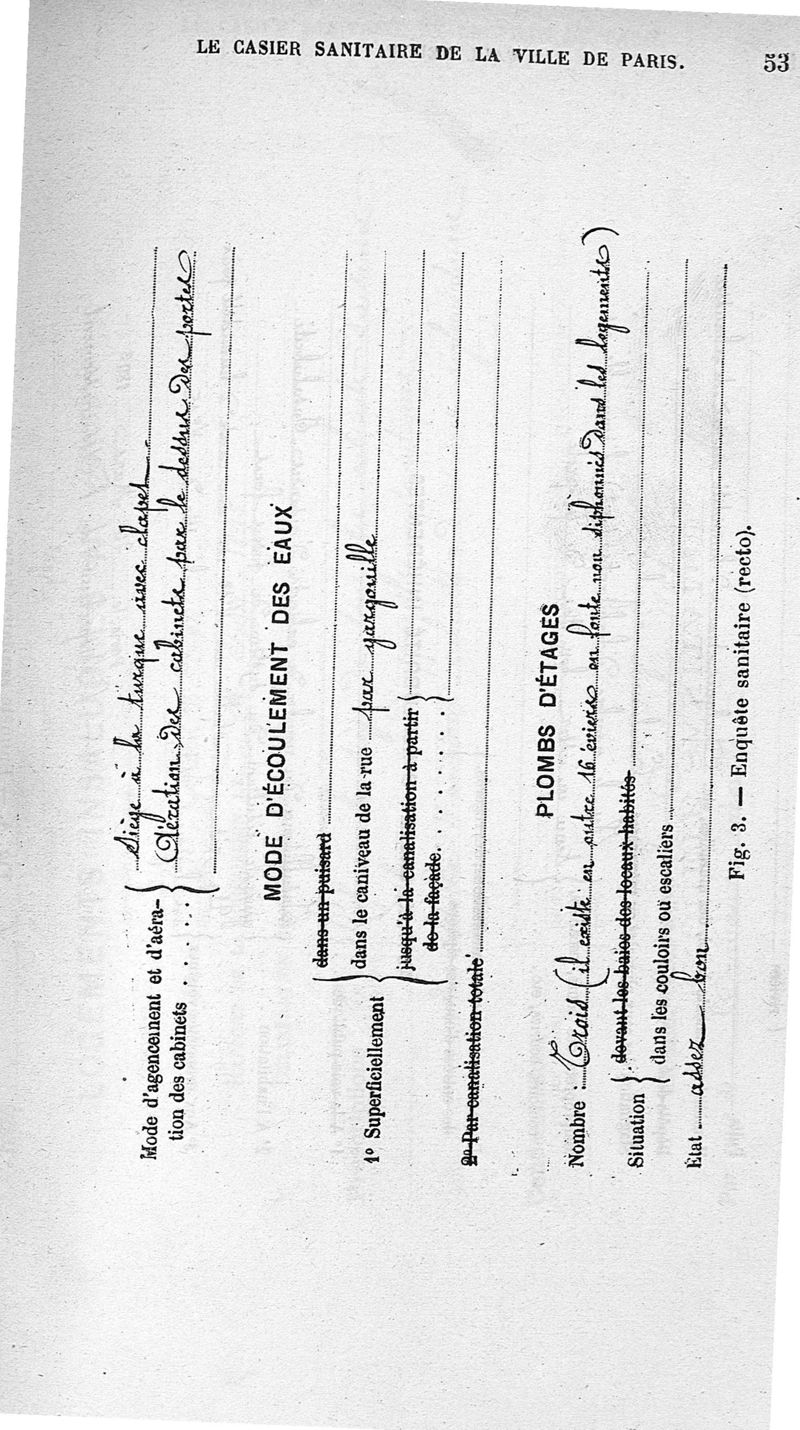 LE CASIER SANITAIRE DE LA VILLE DE PARIS. 53
Mode d'agencement et d'aéra- Siège à la turque avec clapet
tion des cabinets . . . . . Aération des cabinets par le dessus des portes
MODE D'ÉCOULEMENT DES EAUX
dans un puisard
1º Superficiellement dans le caniveau de la rue par gargouille
jusqu'à la canalisation à partir
de la façade . . . . . . .
2º Par canalisation totale
PLOMBS D'ÉTAGES
Nombre : Trois (il existe en outre 16 éviers en fonte non siphonnés dans les logements)
devant les baies des locaux habités
Situation
dans les couloirs ou escaliers
Etat assez bon
Fig. 3. — Enquête sanitaire (recto).